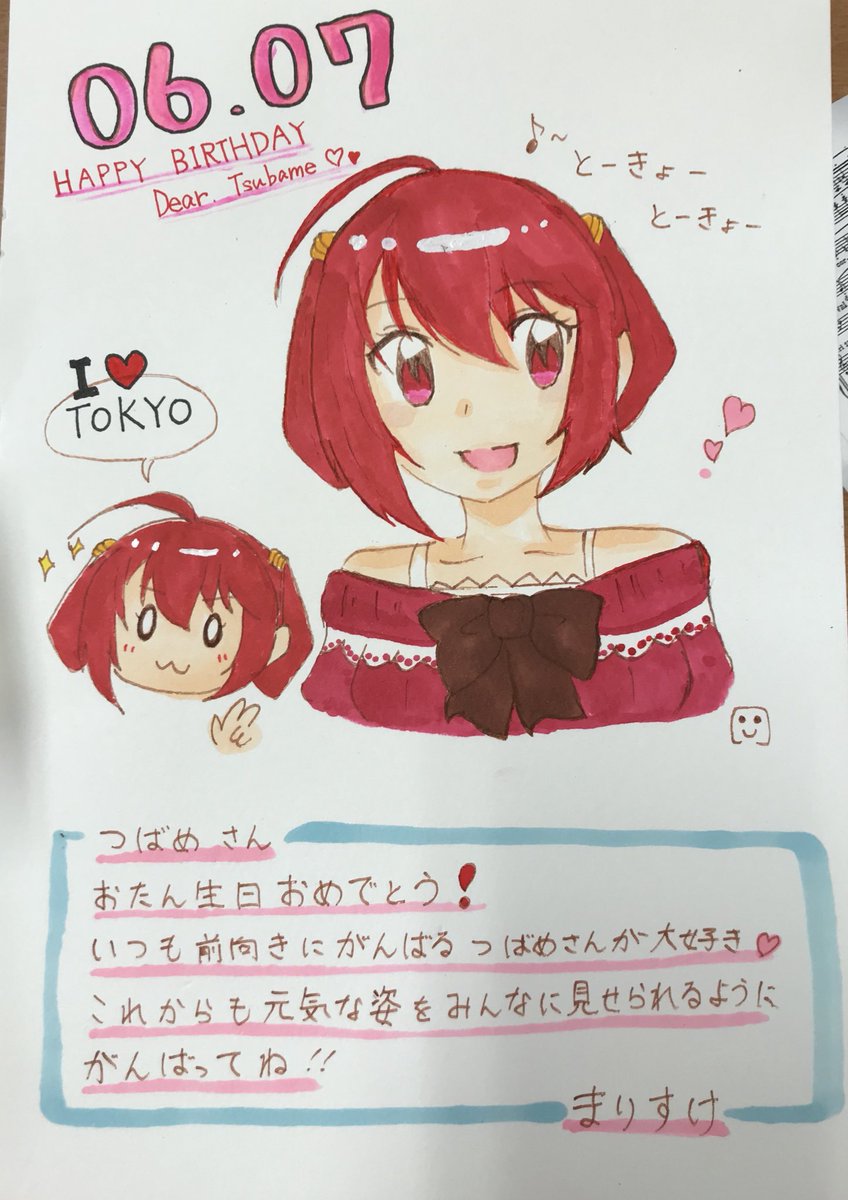 06.07
HAPPY BIRTHDAY
Dear. Tsubame ♡♥
♪〜
とーきょー
とーきょー
I ♥
TOKYO
つばめさん
おたん生日おめでとう!
いつも前向きにがんばるつばめさんが大好き♡
これからも元気な姿をみんなに見せられるように
がんばってね!!
まりすけ